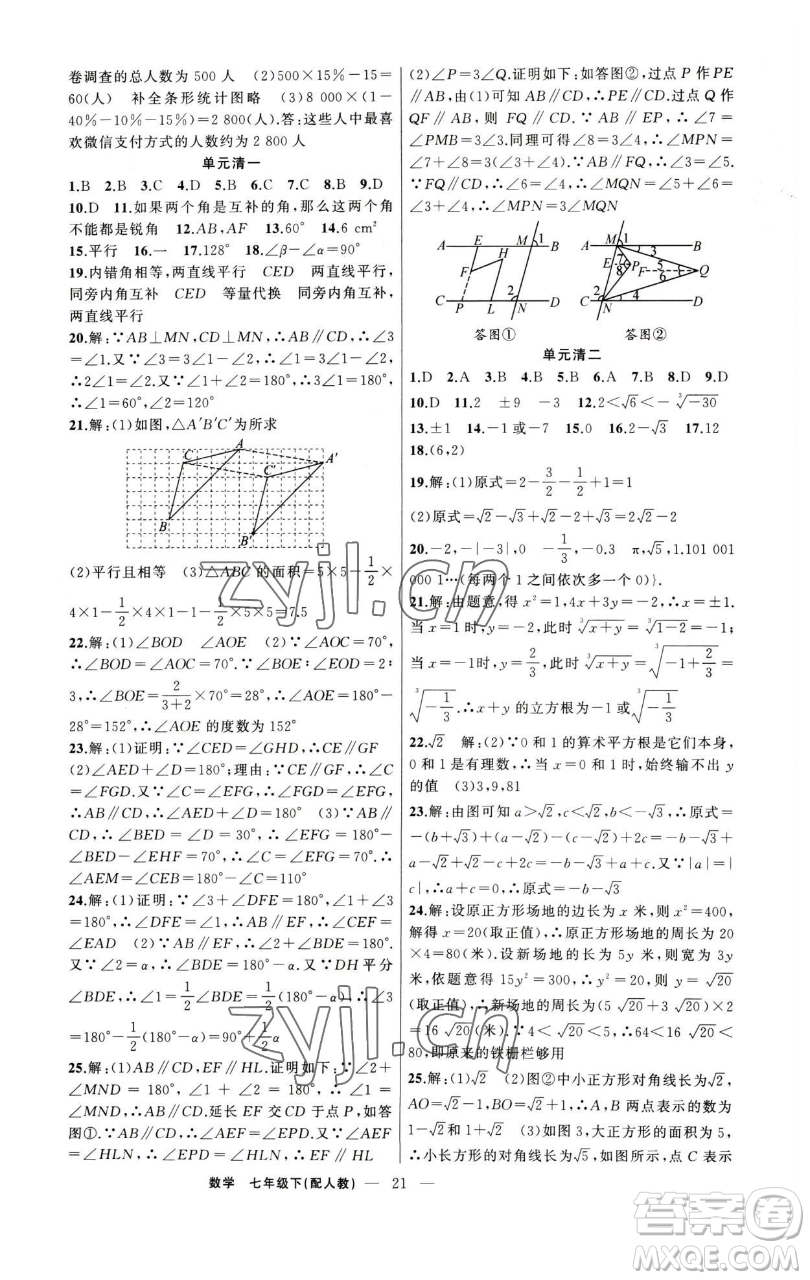 卷调查的总人数为 500 人　(2)500×15%-15=
60(人)　补全条形统计图略　(3)8 000×(1-
40%-10%-15%)=2 800(人).答:这些人中最喜
欢微信支付方式的人数约为 2 800 人
单元清一
1.B　2.B　3.C　4.D　5.D　6.C　7.B　8.B　9.D
10.D　11.如果两个角是互补的角,那么这两个角
不可能都是锐角　12.AB,AF　13.60°　14.6 cm²
15.平行　16.一　17.128°　18.∠β-∠α=90°
19.内错角相等,两直线平行　CED　两直线平行,
同旁内角互补　CED　等量代换　同旁内角互补,
两直线平行
20.解:∵AB⊥MN,CD⊥MN,∴AB∥CD,∴∠3
=∠1.又∵∠3=∠2,∴∠2=∠1.又∵∠α=∠1,
∴2∠1=∠2.又∵∠1+∠2=180°,∴3∠1=180°,
∴∠1=60°,∠2=120°
21.解:(1)如图,△A′B′C′为所求
A
C
A′
C′
B
B′
(2)平行且相等　(3)△ABC 的面积=5×5-1/2×
4×1-1/2×4×1-1-1/2×5×5=7.5
22.解:(1)∠BOD　∠AOE　(2)∵∠AOC=70°,
∴∠BOD=∠AOC=70°.∵∠BOE:∠EOD=2:
3,∴∠BOE=2/(3+2)×70°=28°,∴∠AOE=180°-
28°=152°,∴∠AOE 的度数为 152°
23.解:(1)证明:∵∠CED=∠GHD,∴CE∥GF
(2)∠AED+∠D=180°.理由:∵CE∥GF,∴∠C
=∠FGD.又∵∠C=∠EFG,∴∠FGD=∠EFG,
∴AB∥CD,∴∠AED+∠D=180°　(3)∵AB∥
CD,∴∠BED=∠D=30°,∴∠EFG=180°-
∠BED-∠EHF=70°,∴∠BEC=∠EFG=70°,
∴∠AEM=∠CEB=180°-70°=110°
24.解:(1)证明:∵∠1+∠DFE=180°,∠1+∠2
=180°,∴∠DFE=∠2,∴AB∥EF,∴∠CEF=
∠EAD　(2)∵AB∥EF,∴∠2+∠BDE=180°.
又∵∠2=α,∴∠BDE=180°-α.又∵DH平分
∠BDE,∴∠1=1/2∠BDE=1/2(180°-α),∴∠3
=180°-1/2(180°-α)=90°+1/2α
25.解:(1)AB∥CD,EF∥HL.证明如下:∵∠2+
∠MND=180°,∠1+∠2=180°,∴∠1=
∠MND,∴AB∥CD.延长 EF 交CD于点P,如答
图①.∵AB∥CD,∴∠AEF=∠EPD.又∵∠AEF
=∠HLN,∴∠EPD=∠HLN,∴EF∥HL
(2)∠P=3∠Q.证明如下:如答图②,过点 P 作 PE
∥AB,由(1)可知 AB∥CD,∴PE∥CD.过点 Q 作
QF∥AB,则 FQ∥CD.∵AB∥EP,∴∠7=
∠PMB=3∠3.同理可得∠8=3∠4,∴∠MPN=
∠7+∠8=3(∠3+∠4).∵AB∥FQ,∴∠3=∠5.
∵FQ∥CD,∴∠6=∠4,∴∠MQN=∠5+∠6=
∠3+∠4,∴∠MPN=3∠MQN
A E M 1 B
H
F
2
C P L N D
答图①
A M 1 3 B
E 7 P F 5 Q
8 6
2 4
C N D
答图②
单元清二
1.D　2.A　3.B　4.B　5.B　6.A　7.B　8.D　9.D
10.D　11.2　±9　-3　12.2<√6<-∛-30
13.±1　14.-1 或-7　15.0　16.2-√3　17.12
18.(6,2)
19.解:(1)原式=2-3/2-1/2+1=1
(2)原式=√2-√3+√2-2+√3=2√2-2
20.-2,-|-3|,0　0,-1/3,-0.3　π,√5,1.101 001
000 1…(每两个 1 之间依次多一个 0)}.
21.解:由题意,得 x²=1,4x+3y=2,∴x=±1.
当 x=1时,y=-2/3,此时∛x+y=∛1-2/3;
当 x=-1时,y=2/3,此时∛x+y=∛-1+2/3=
∛-1/3.∴x+y 的立方根为-1 或∛-1/3
22.√2　解:(2)∵0 和 1 的算术平方根是它们本身,
0 和 1 是有理数,∴当 x=0 和 1 时,始终输不出 y
的值　(3)3,9,81
23.解:由图可知 a>√2,c<√2,b<-√3,∴原式=
-(b+√3)+(a-√2)-(c-√2)+2c=-b-√3+
a-√2-c+√2+2c=-b-√3+a+c.又∵|a|=|
c|,∴a+c=0,∴原式=-b-√3
24.解:设原正方形场地的边长为 x 米,则 x²=400,
解得 x=20(取正值),∴原正方形场地的周长为 20
×4=80(米).设新场地的长为 5y 米,则宽为 3y
米,依题意得 15y²=300,∴y²=20,∴y=√20
(取正值),∴新场地的周长为(5√20+3√20)×2
=16√20(米).∵4<√20<5,∴64<16√20<
80,即原来的铁栅栏够用
25.解:(1)√2　(2)图②中小正方形对角线长为√2,
AO=√2-1,BO=√2+1,∴A,B 两点表示的数为
1-√2和1+√2　(3)如图 3,大正方形的面积为 5,
∴小长方形的对角线长为√5,如图所示,点 C 表示
数学　七年级下(配人教)　— 21 —
zyjl.cn
zyjl.cn
答案卷
MXQE.COM